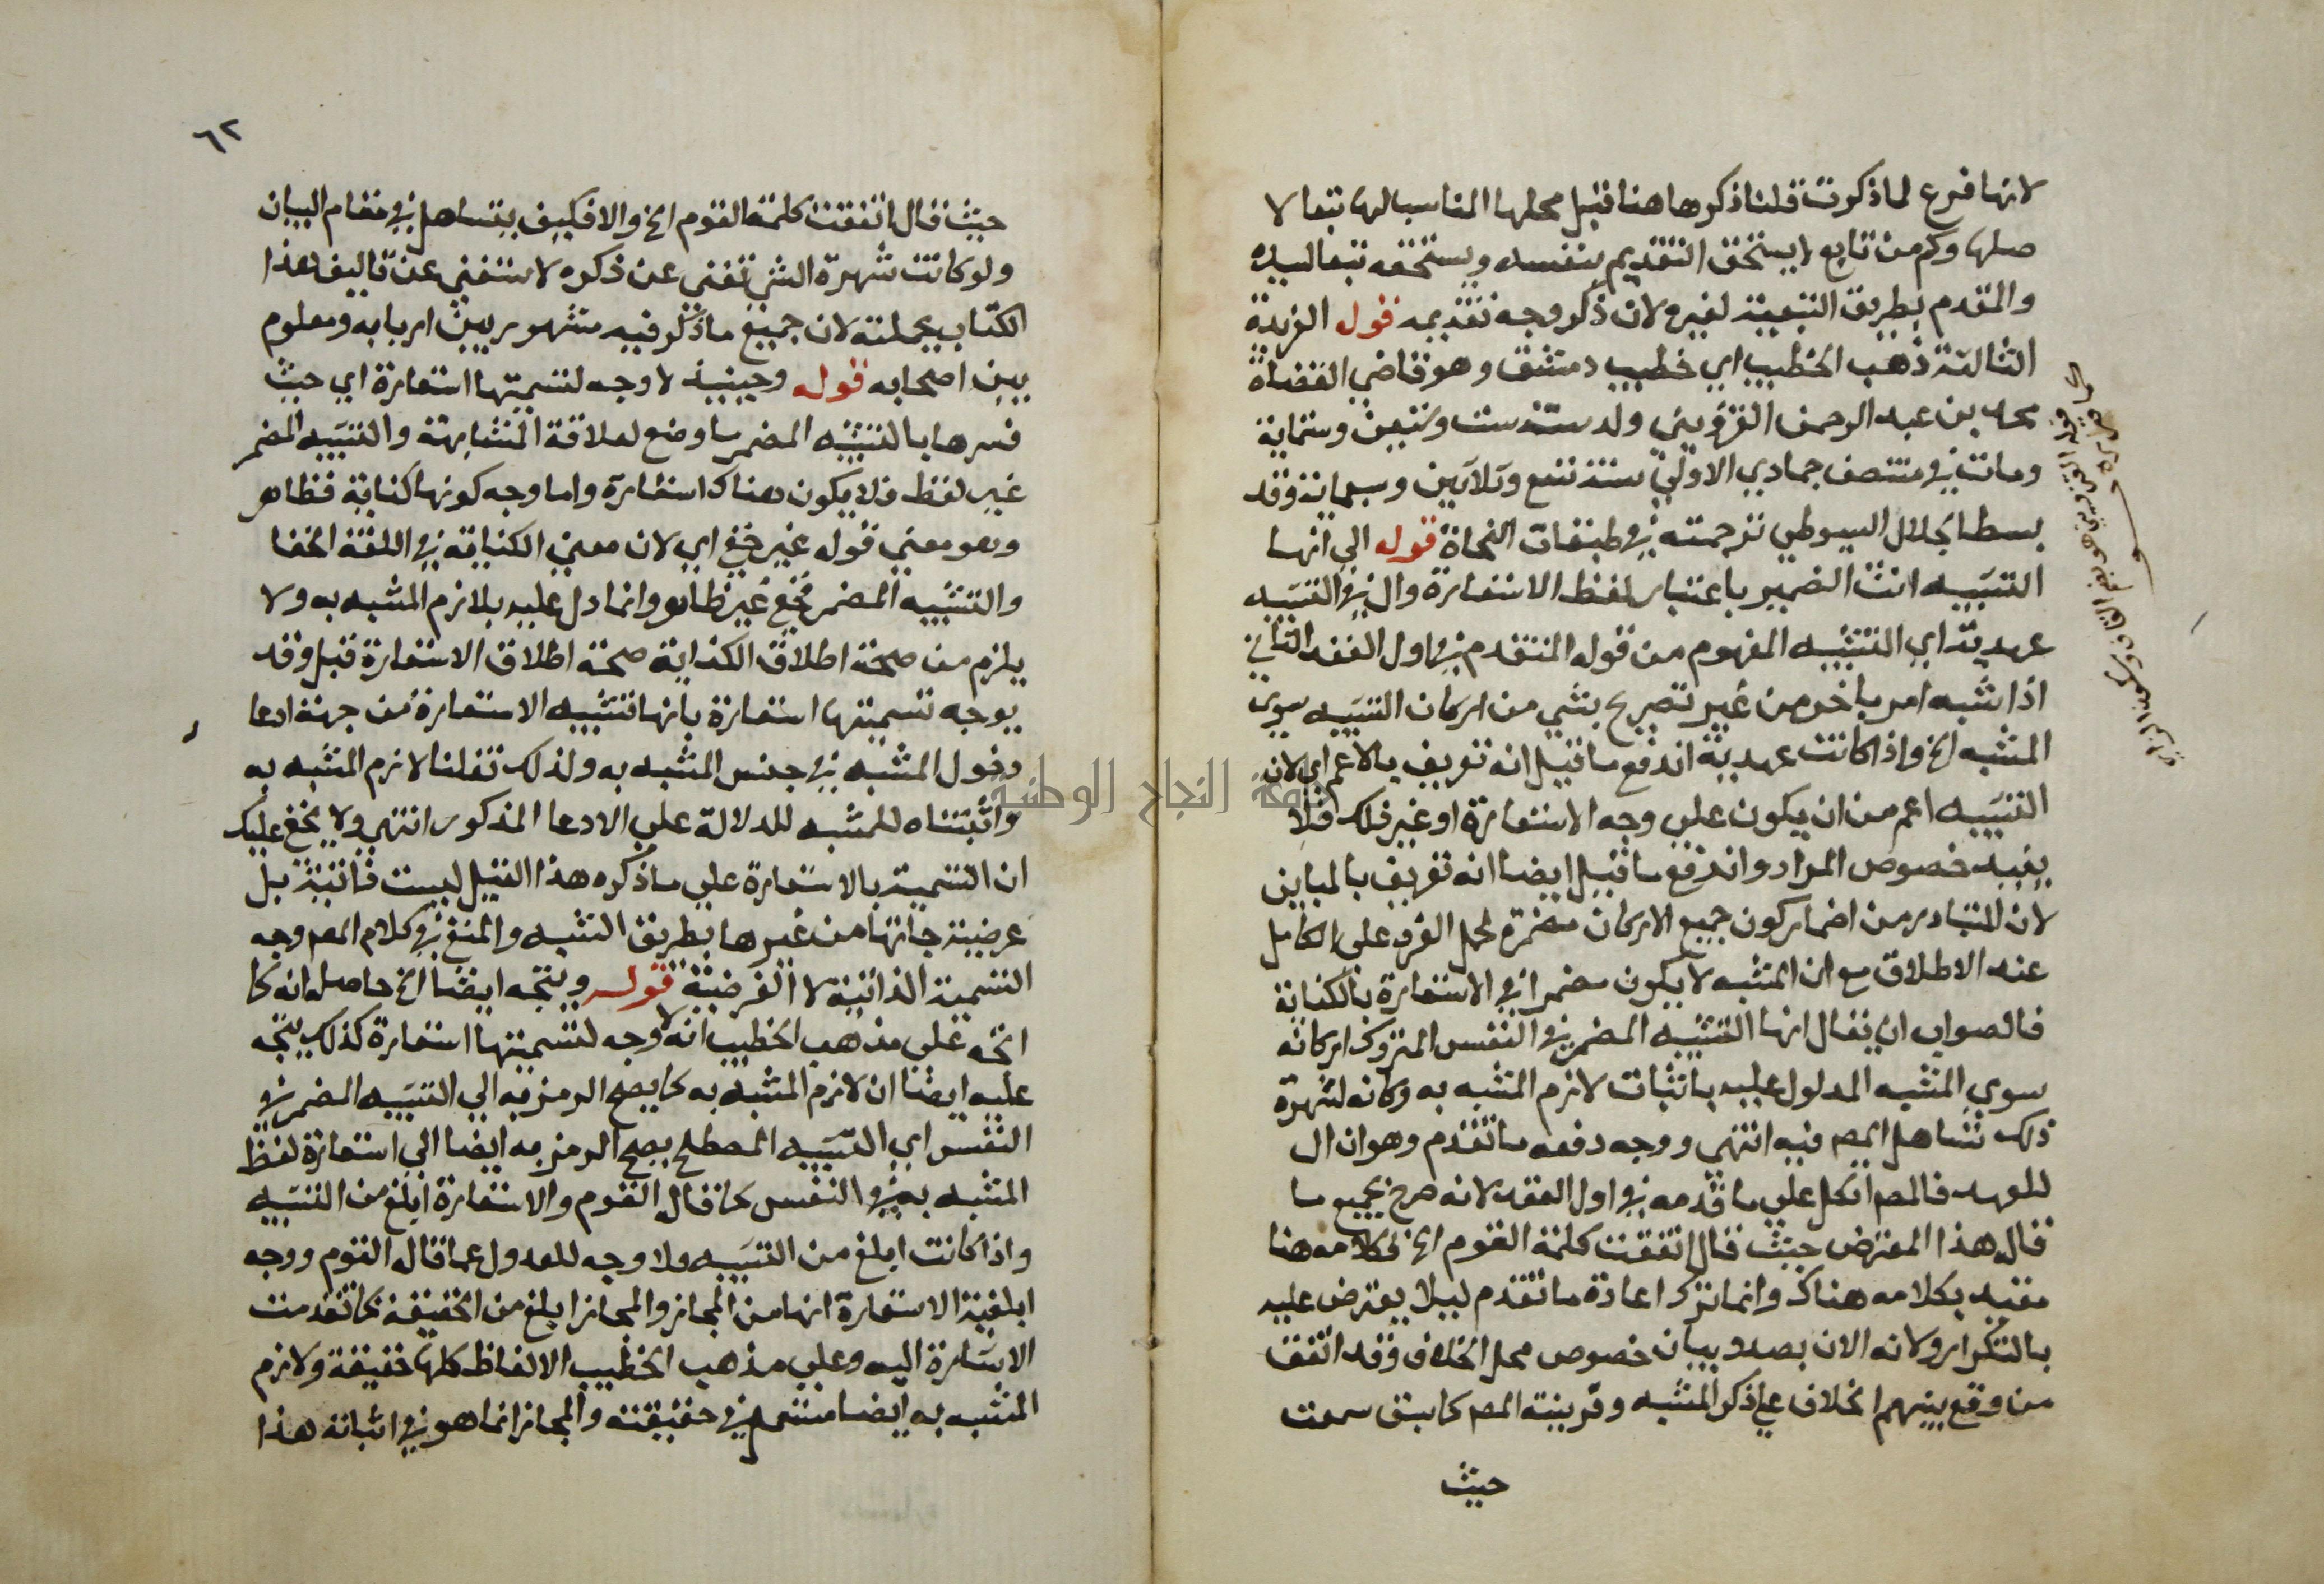 لانها فرع لما ذكرت قلنا ذكرها هنا قبل محلها المناسب لها تبعا لا
صلها وكم من تابع لا يستحق التقديم بنفسه ويستحقه تبعا لسيده
والمقدم بطريق التبعية لغيره لان ذكر وجه تقديمه قوله الفريدة
الثالثة ذهب الخطيب اي خطيب دمشق وهو قاضي القضاة
محمد بن عبد الرحمن القزويني ولد سنة ست وستين وستماية
ومات في منتصف جمادي الاولي سنة تسع وثلاثين وسبعماية وقد
بسط الجلال السيوطي ترجمته في طبقات النحاة قوله الي انها
التشبيه انث الضمير باعتبار لفظ الاستعارة وال في التشبيه
عهدية اي التشبيه المفهوم من قوله المتقدم في اول العقد الثاني
اذا شبه امر باخر من غير تصريح بشي من اركان التشبيه سوي
المشبه الخ واذا كانت عهدية اندفع ما قيل انه تعريف بالاعم اي لان
التشبيه اعم من ان يكون علي وجه الاستعارة او غير ذلك فلا
يفيد خصوص المراد واندفع ما قيل ايضا انه تعريف بالمباين
لان المتبادر من اضمار كون جميع الاركان مضمرة لحمل الفرد علي الكامل
عند الاطلاق مع ان المشبه لا يكون مضمرا في الاستعارة بالكناية
فالصواب ان يقال انها التشبيه المضمر في النفس المتروك اركانه
سوي المشبه المدلول عليه باثبات لازم المشبه به وكانه لشهرة
ذلك تساهل المصـ فيه انتهي ووجه دفعه ما تقدم وهو ان ال
للعهد فالمصـ اتكل علي ما قدمه في اول العقد لانه صرح بجميع ما
قال هذا المعترض حيث قال اتفقت كلمة القوم الخ فكلامه هنا
مقيد بكلامه هناك وانما ترك اعادة ما تقدم ليلا يعترض عليه
بالتكرار ولانه الان بصدد بيان خصوص محل الخلاف وقد اتفق
من وقع بينهم الخلاف علي ذكر المشبه وقرينة المصـ كما سبق سمعت
حيث
٦٢
حيث قال اتفقت كلمة القوم الخ والا فكيف يتساهل في مقام البيان
ولو كانت شهرة الشي تغني عن ذكره لاستغني عن تاليف هذا
الكتاب بجملته لان جميع ما ذكر فيه مشهور بين اربابه ومعلوم
بين اصحابه قوله وحينيذ لا وجه لتسميتها استعارة اي حيث
فسرها بالتشبيه المضمر ما وضع لعلاقة المشابهة والتشبيه المضمر
غير لفظ فلا يكون هناك استعارة واما وجه كونها كناية فظاهر
وهو معني قوله غير خفي اي لان معني الكناية في اللغة الخفا
والتشبيه المضمر خفي غير ظاهر وانما دل عليه بلازم المشبه به ولا
يلزم من صحة اطلاق الكناية صحة اطلاق الاستعارة قيل وقد
يوجه تسميتها استعارة بانها تشبيه الاستعارة من جهة ادعا
دخول المشبه في جنس المشبه به ولذلك نقلنا لازم المشبه به
واثبتناه للمشبه للدلالة علي الادعا المذكور انتهي ولا يخفي عليك
ان التسمية بالاستعارة علي ما ذكره هذا القيل ليست ذاتية بل
عرضية جاتها من غيرها بطريق التشبيه والمنفي في كلام المصـ وجه
التسمية الذاتية لا العرضية قوله ويتجه ايضا الخ حاصله انه كما
اتجه علي مذهب الخطيب انه لا وجه لتسميتها استعارة كذلك يتجه
عليه ايضا ان لازم المشبه به كما يصح الرمز به الي التشبيه المضمر في
النفس اي التشبيه المصطلح يصح الرمز به ايضا الي استعارة لفظ
المشبه به في النفس كما قال القوم والاستعارة ابلغ من التشبيه
واذا كانت ابلغ من التشبيه فلا وجه للعدول عما قاله القوم ووجه
ابلغية الاستعارة انها من المجاز والمجاز ابلغ من الحقيقة كما تقدمت
الاشارة اليه وعلي مذهب الخطيب الالفاظ كلها حقيقة ولازم
المشبه به ايضا مستعمل في حقيقته والمجاز انما هو في اثباته هذا
جامعة النجاح الوطنية